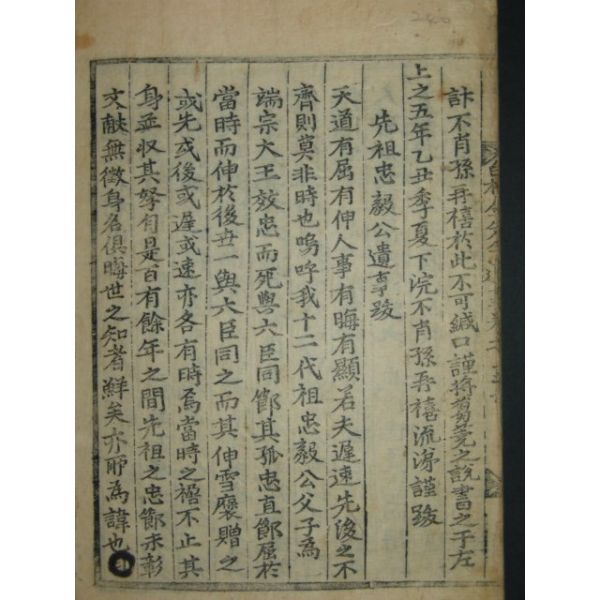 訃不肖孫再禧於此不可緘口謹將蒭蕘之說書之于左
上之五年乙丑季夏下浣不肖孫再禧流涕謹跋
先祖忠毅公遺事跋
天道有屈有伸人事有晦有顯若夫遲速先後之不
齊則莫非時也嗚呼我十二代祖忠毅公父子爲
端宗大王效忠而死與六臣同節其孤忠直節屈於
當時而伸於後世一與六臣同之而其伸雪褒贈之
或先或後或遲或速亦各有時焉當時之禍不止其
身並收其孥有是百有餘年之間先祖之忠節未彰
文献無徵身名俱晦世之知者鮮矣亦所爲諱也
240